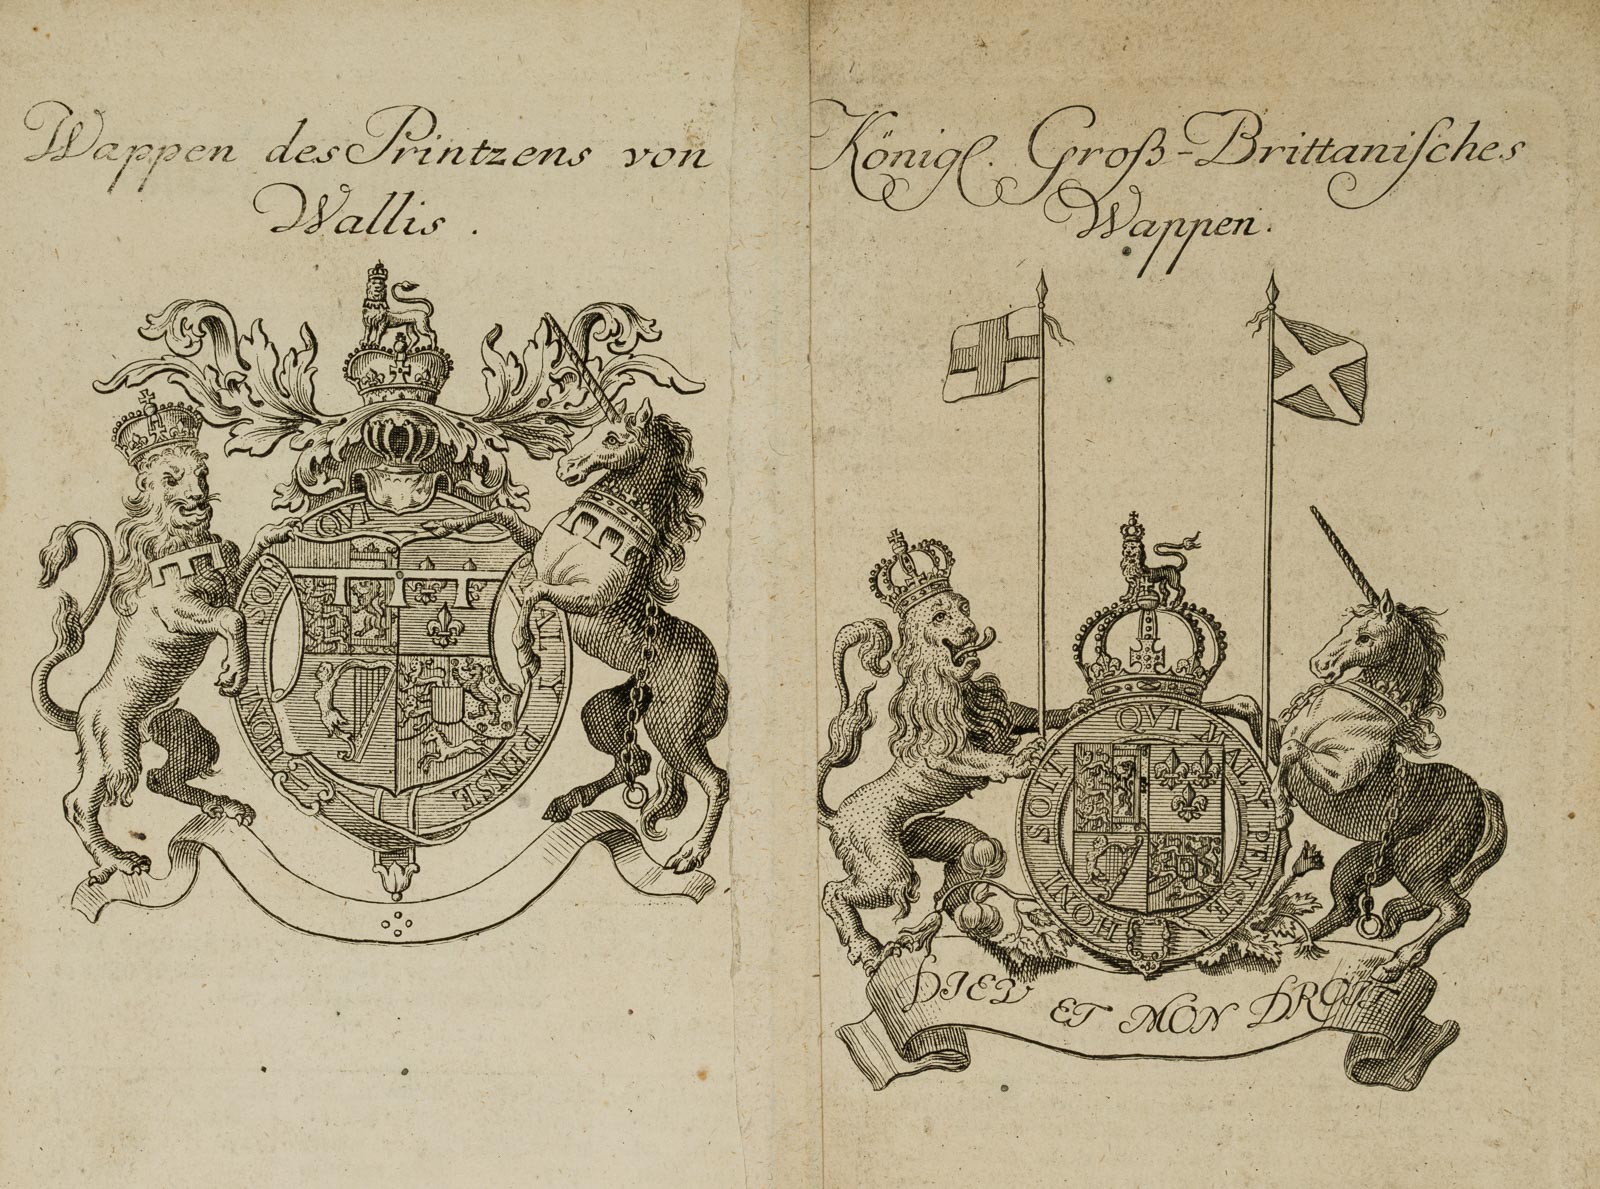 Wappen des Printzens von
Wallis.
HONI SOIT QVI MAL Y PENSE
Königl. Groß-Brittaniſches
Wappen.
HONI SOIT QVI MAL Y PENSE
DIEV ET MON DROIT